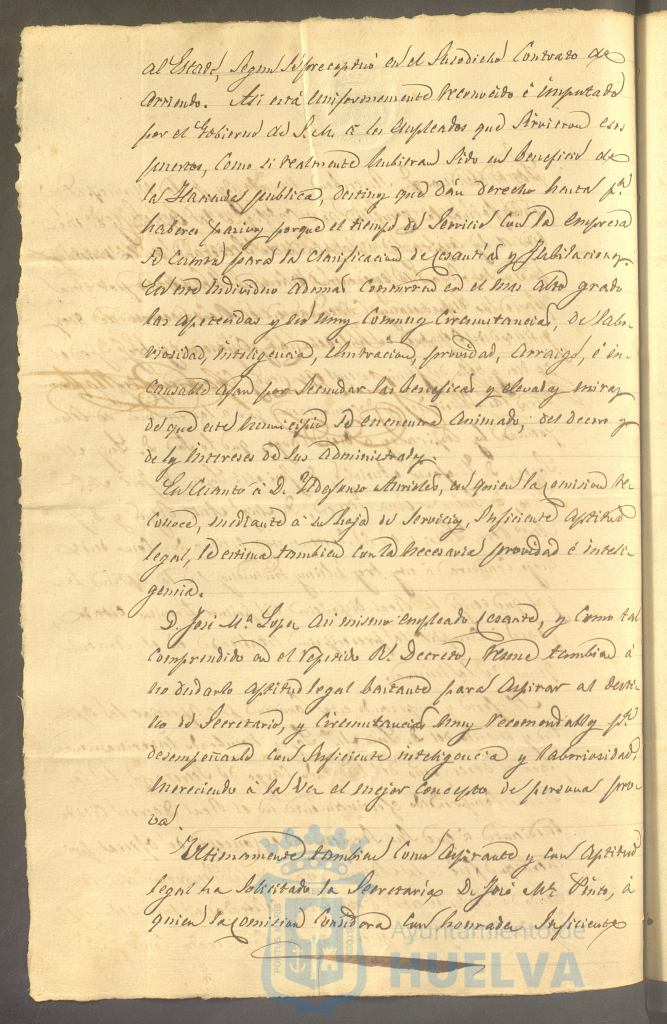 al Estado, segun se preceptuó en el susodicho Contrato de
arriendo. Asi está uniformemente reconocido é imputado
por el Gobierno de S.M. á los empleados que sirvieron esos
puertos, como si realmente hubieran sido en beneficio de
la Hacienda pública, destinos que dán derecho hasta pª
haberes pasivos porque el tiempo de servicio con la empresa
se cuenta para la clasificacion de cesantías y Jubilaciones.
En este individuo ademas concurren en el mas alto grado
las apetecidas y no muy comunes circunstancias, de labo-
riosidad, inteligencia, ilustracion, providad, arraigo, é in-
causable afan por secundar las beneficas y elevadas miras
de que este municipio se encuentra animado, del decoro y
de los intereses de sus administrados.
En cuanto á D. Ildefonso Aurioles, en quien la comision re-
conoce, mediante á su hoja de servicios, suficiente aptitud
legal, le estima tambien con la necesaria providad é inteli-
gencia.
D. José Mª Lopez asi mismo empleado cesante, y como tal
comprendido en el repetido Rl. Decreto, reune tambien á
no dudarlo aptitud legal bastante para aspirar al desti-
no de Secretario, y circunstancias muy recomendables pª
desempeñarlo con suficiente inteligencia y laboriosidad,
mereciendo á la vez el mejor concepto de persona pro-
va.
Ultimamente tambien como aspirante y con aptitud
legal ha solicitado la Secretaria D. José Mª Pinto, á
quien la comision considera con honradez suficiente
Ayuntamiento de
HUELVA